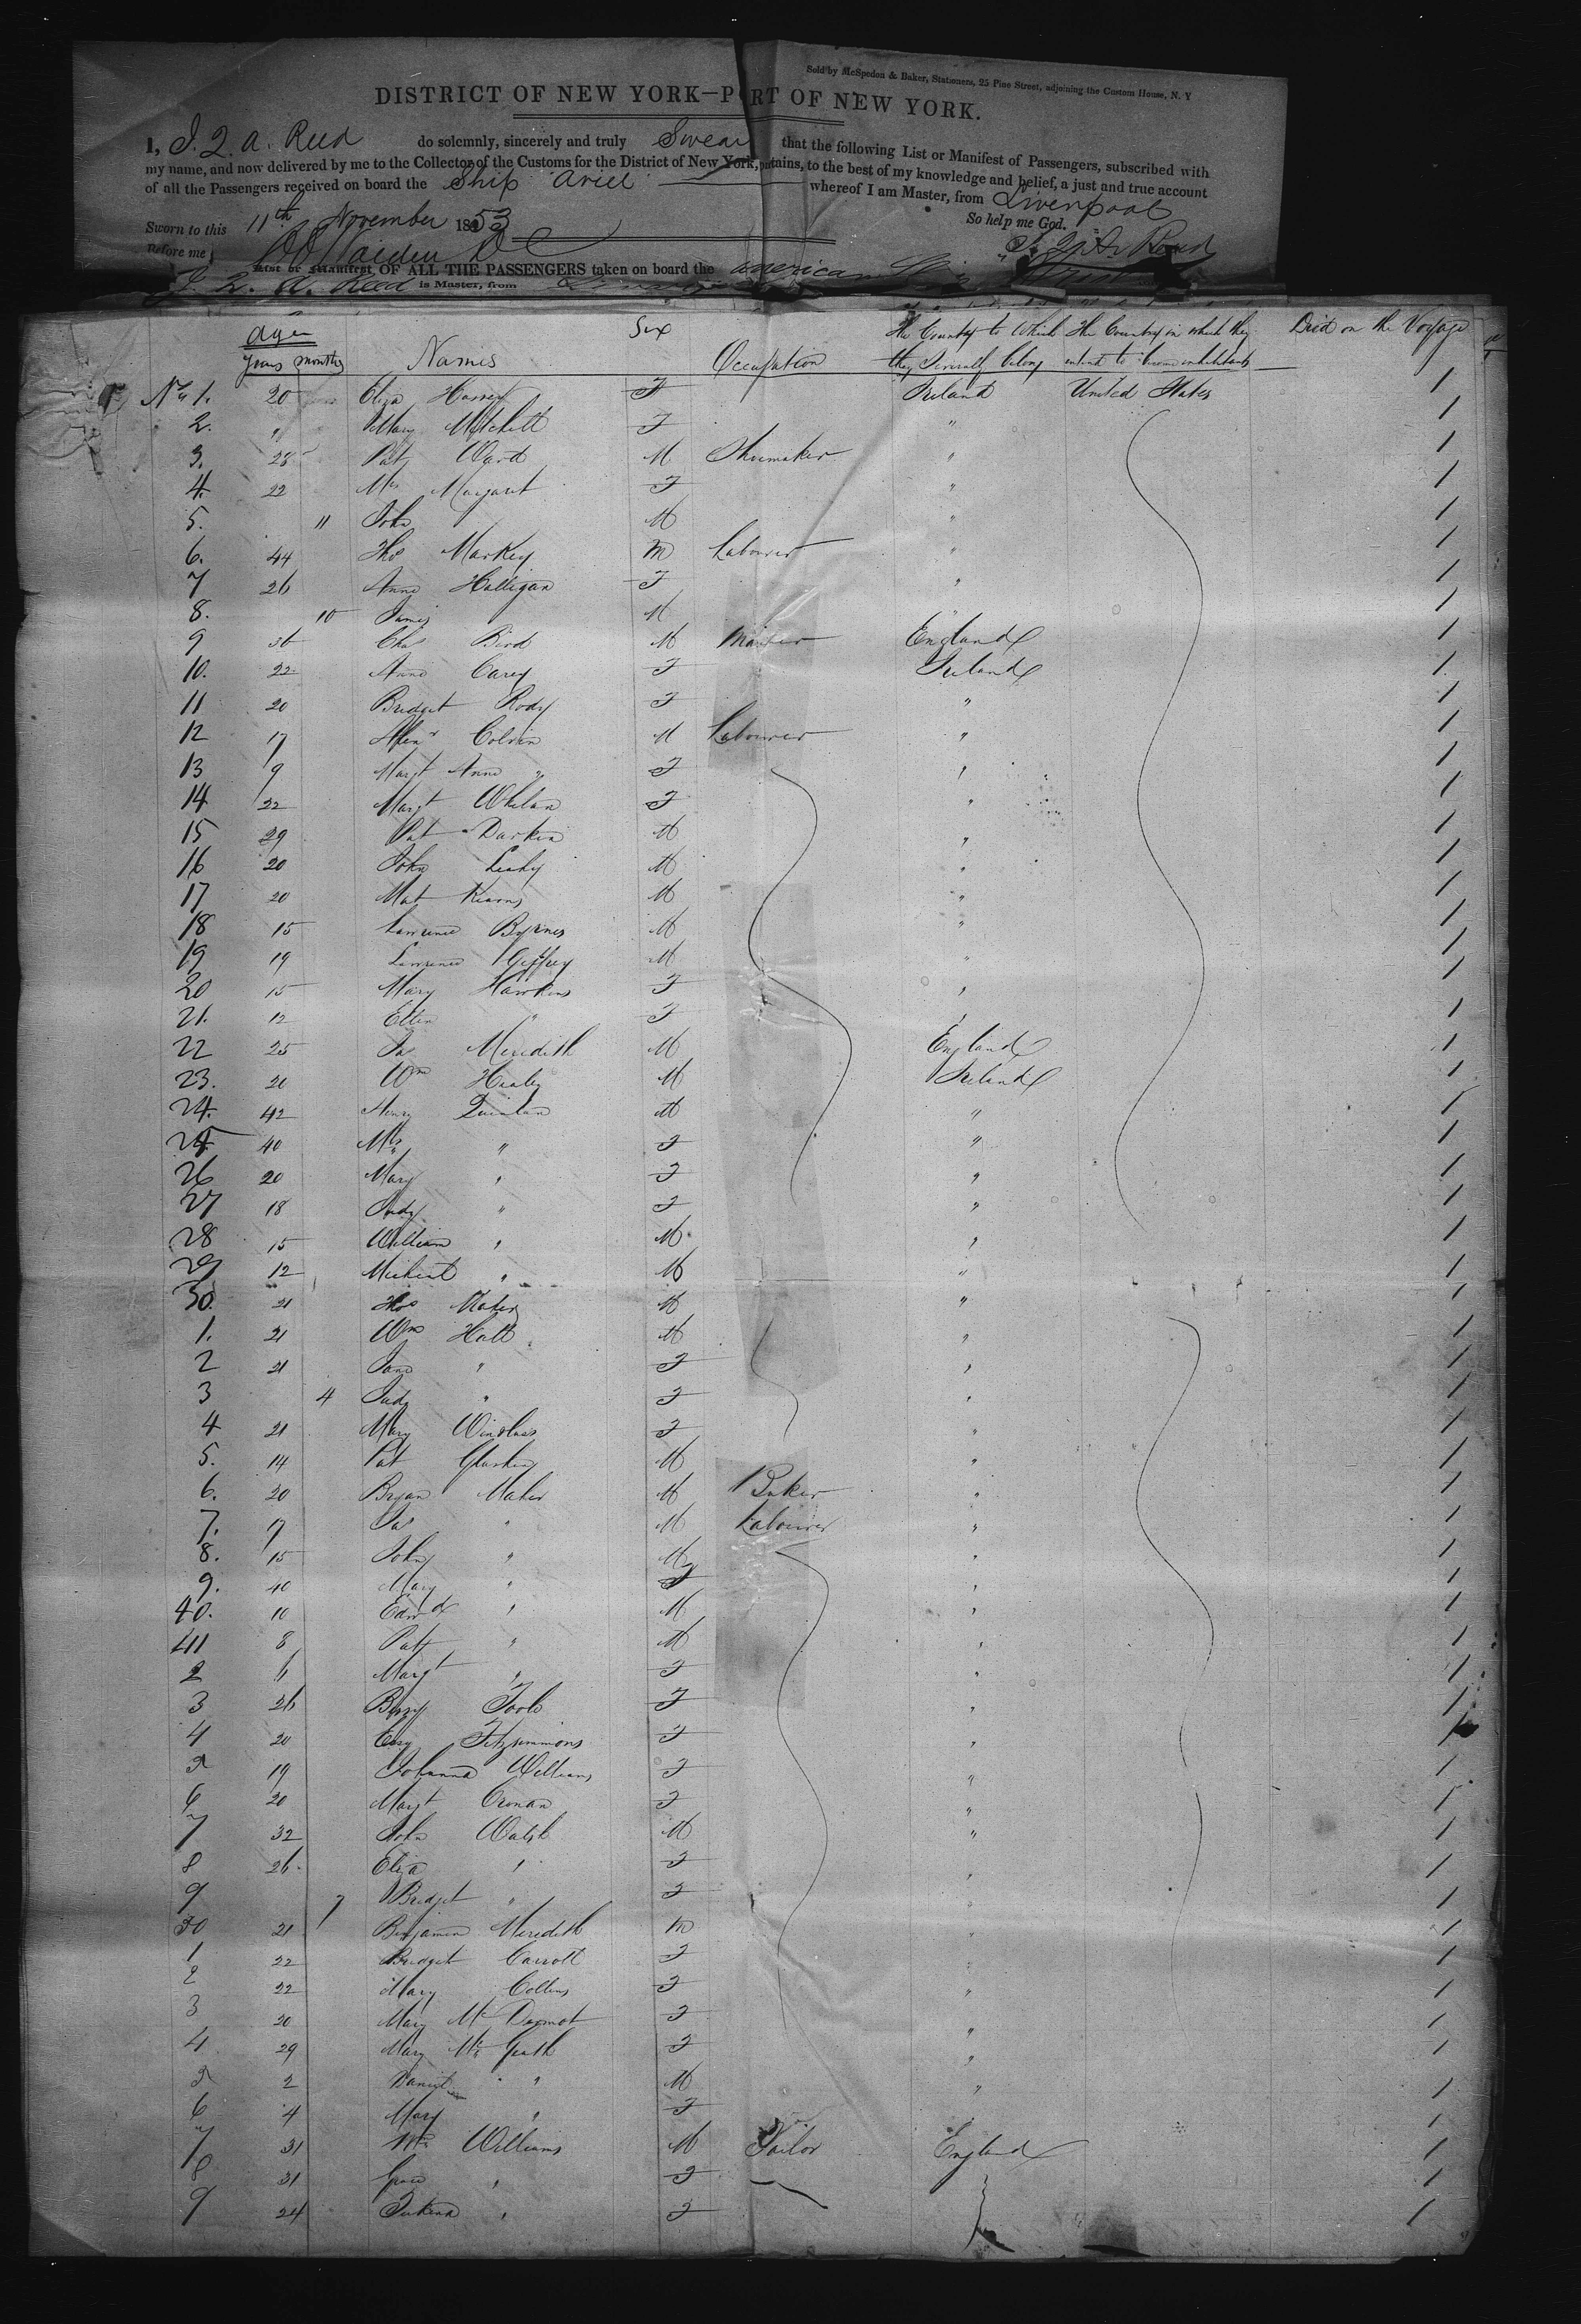 Sold by McSpedon & Baker, Stationers, 25 Pine Street, adjoining the Custom House, N. Y
DISTRICT OF NEW YORK—PORT OF NEW YORK.
I, J. Q. A. Reed do solemnly, sincerely and truly Swear that the following List or Manifest of Passengers, subscribed with
my name, and now delivered by me to the Collector of the Customs for the District of New York, contains, to the best of my knowledge and belief, a just and true account
of all the Passengers received on board the Ship Ariel whereof I am Master, from Liverpool
So help me God.
Sworn to this 11th November 1853 J. Q. A. Reed
Before me
List or Manifest OF ALL THE PASSENGERS taken on board the American Ship
J. Q. A. Reed is Master, from
Ages Names Sex Occupation The Country to Which The Country in which they Died on the Voyage
years months they Severally belong intend to become inhabitants
No. 1. 20 Eliza F Ireland United States 1
2. " Mary Mitchell F " 1
3. 28 Pat Ward M Shoemaker " 1
4. 22 Mrs Margaret F " 1
5. 11 John M " 1
6. 44 Thos Markey M Labourer " 1
7 26 Anne Halligan F " 1
8. 10 James M " 1
9 36 Chas Bird M England 1
10. 22 Anne Carey F Ireland 1
11 20 Bridget Rody F " 1
12 17 Colvin M Labourer " 1
13 9 Margt Anne " F " 1
14 22 Margt Whelan F " 1
15 29 Pat Darkin M " 1
16 20 John Leahy M " 1
17 20 Mat Kearns M " 1
18 15 Lawrence Byrnes M " 1
19 19 Lawrence Geffrey M " 1
20 15 Mary Hawkins F " 1
21. 12 Ellen " F " 1
22 25 Jas Meredith M England 1
23. 20 Wm Healey M Ireland 1
24. 42 Henry Quinlan M " 1
25 40 Mrs " F " 1
26 20 Mary " F " 1
27 18 Judy " F " 1
28 15 William " M " 1
29 12 Micheal " M " 1
30. 21 Thos Maher M " 1
1. 21 Wm Hall M " 1
2 21 Jane " F " 1
3 4 Judy " F " 1
4 21 Mary F " 1
5. 14 Pat M " 1
6. 20 Bryan Maher M Baker " 1
7. 17 Jas " M Labourer " 1
8. 15 John " M " 1
9. 40 Mary " F " 1
40. 10 Edwd " M " 1
41 8 Pat " M " 1
2 6 Margt " F " 1
3 26 Betsy Toole F " 1
4 20 Fitzsimmons F " 1
5 19 Johanna Williams F " 1
6 20 Margt Cronan F " 1
7 32 John Walsh M " 1
8 26 Eliza " F " 1
9 7 Bridget " F " 1
50 21 Benjamin Meredith M " 1
1 22 Bridget Carroll F " 1
2 22 Mary Collins F " 1
3 20 Mary McDermot F " 1
4 29 Mary F " 1
5 2 Daniel " M " 1
6 4 Mary " F " 1
7 31 Wm Williams M Tailor England 1
8 31 Grace " F 1
9 24 " F 1